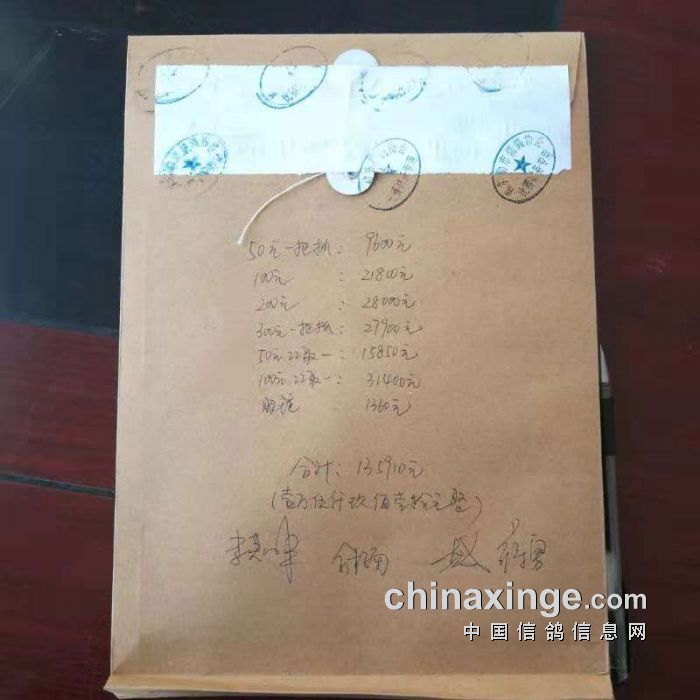 50元一把抓：9600元
100元：21800元
200元：28000元
300元一把抓：27900元
50元22取一：15850元
100元22取一：31400元
1360元
合计：135910元
（壹万伍仟玖佰壹拾元整）
chinaxinge.com
中国信鸽信息网